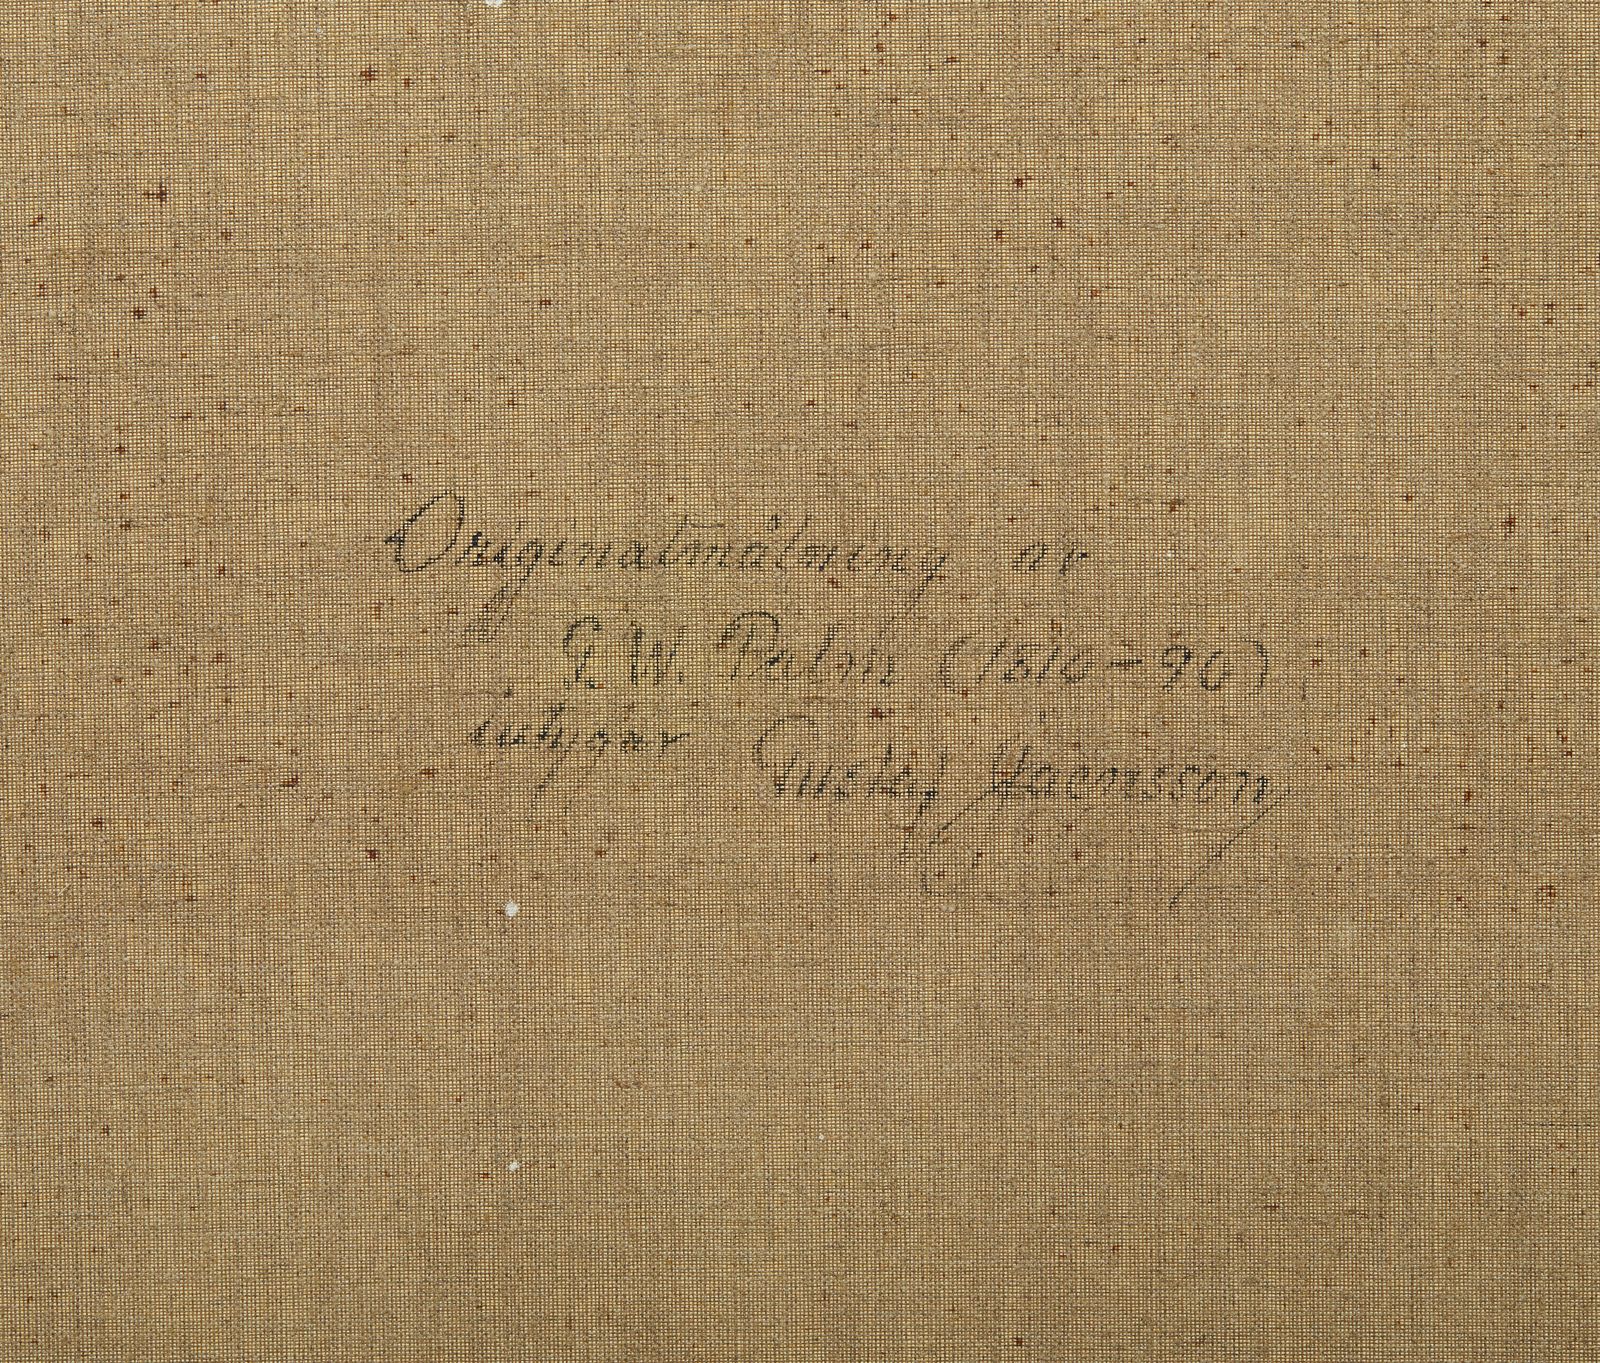 Originalmålning av
G.W. Palm (1810-90)
intygar Gustaf Jacobsson